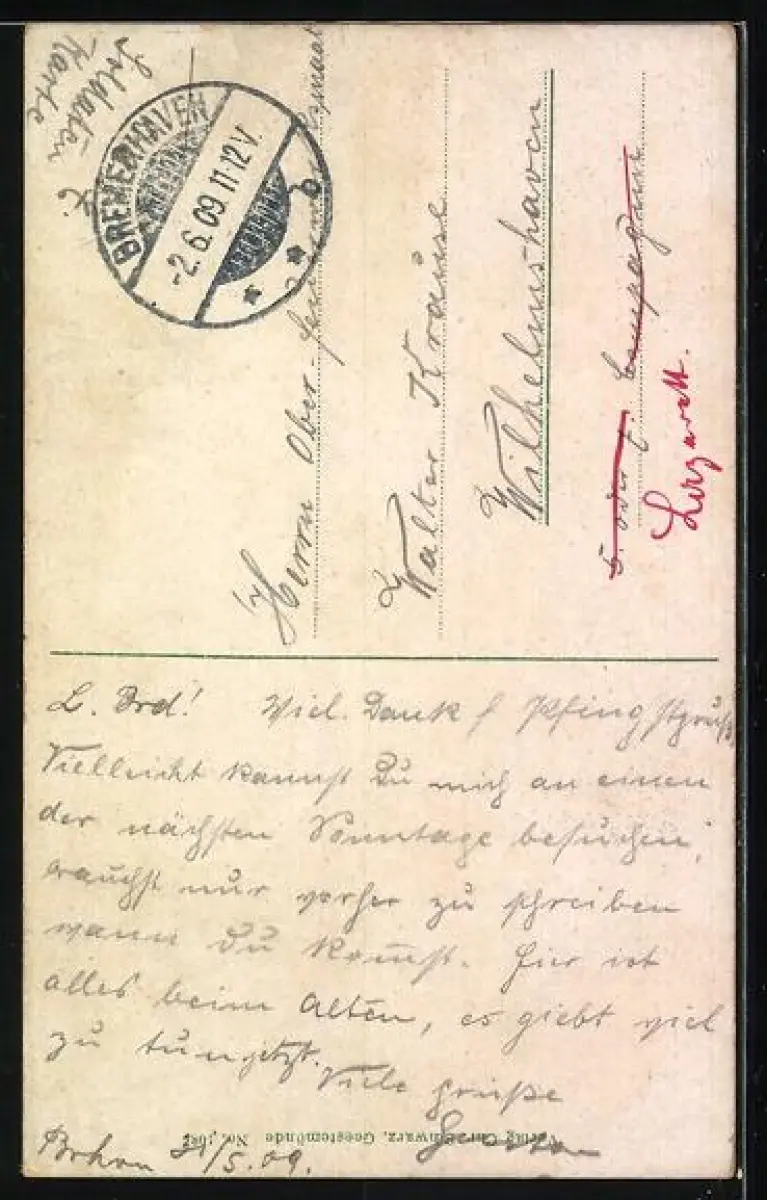 Soldaten
Karte
BREMERHAVEN
-2.6.09.11-12V.
* * b
Herrn Ober-
Walter Krause
Wilhelmshaven
5. oder 7. Compagnie
Lazarett.
L. Brd! Viel. Dank f Pfingstgruß,
Vielleicht kannst Du mich an einen
der nächsten Sonntage besuchen,
brauchst nur vorher zu schreiben
wann Du kommst. Hier ist
alles beim Alten, es giebt viel
zu tun jetzt. Viele Grüße
Brhvn 31/5.09.
Verlag Carl Schwarz, Geestemünde No.